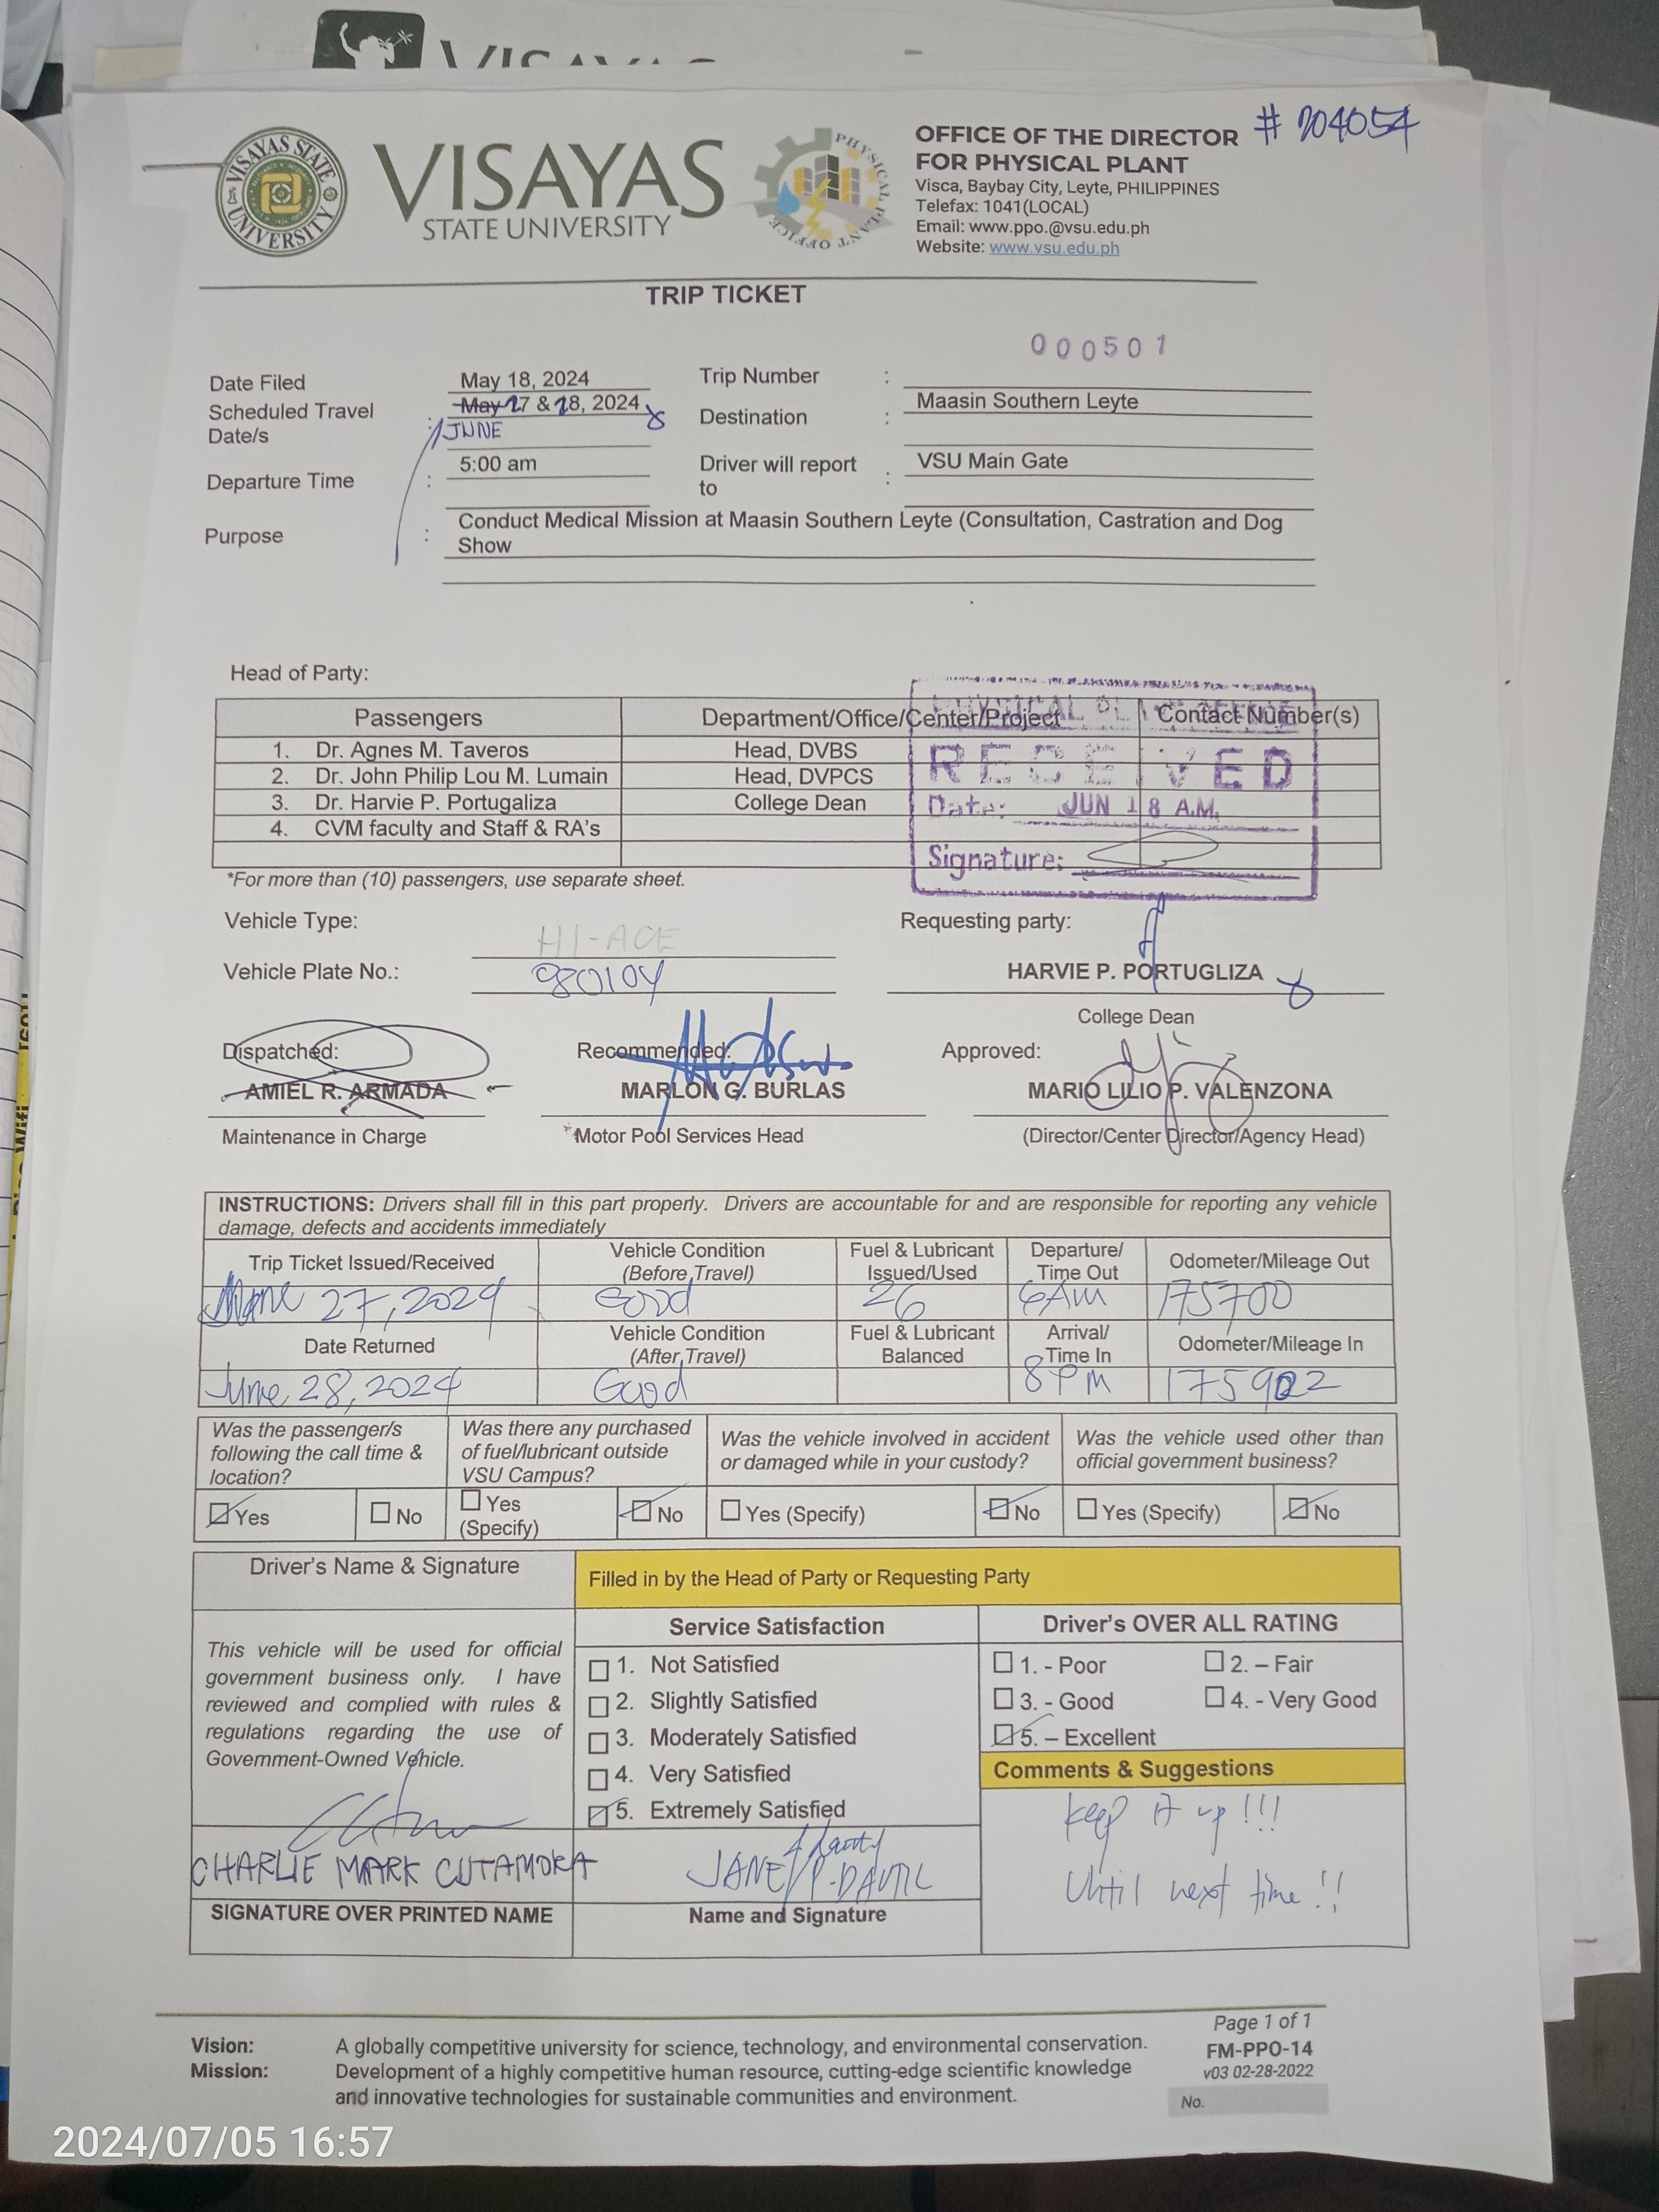 VISAYAS
# 204054
VISAYAS STATE UNIVERSITY
VISAYAS
STATE UNIVERSITY
PHYSICAL PLANT OFFICE
OFFICE OF THE DIRECTOR
FOR PHYSICAL PLANT
Visca, Baybay City, Leyte, PHILIPPINES
Telefax: 1041(LOCAL)
Email: www.ppo.@vsu.edu.ph
Website: www.vsu.edu.ph
TRIP TICKET
000501
Date Filed May 18, 2024 Trip Number :
Scheduled Travel Date/s : May 27 & 28, 2024 Destination : Maasin Southern Leyte
JUNE
Departure Time : 5:00 am Driver will report to : VSU Main Gate
Purpose : Conduct Medical Mission at Maasin Southern Leyte (Consultation, Castration and Dog
Show
Head of Party:
Passengers Department/Office/Center/Project Contact Number(s)
1. Dr. Agnes M. Taveros Head, DVBS
2. Dr. John Philip Lou M. Lumain Head, DVPCS
3. Dr. Harvie P. Portugaliza College Dean
4. CVM faculty and Staff & RA's
PHYSICAL PLANT OFFICE
RECEIVED
Date: JUN 18 A.M.
Signature:
*For more than (10) passengers, use separate sheet.
Vehicle Type: HI-ACE Requesting party:
Vehicle Plate No.: 980104 HARVIE P. PORTUGLIZA
College Dean
Dispatched: Recommended: Approved:
AMIEL R. ARMADA MARLON G. BURLAS MARIO LILIO P. VALENZONA
Maintenance in Charge Motor Pool Services Head (Director/Center Director/Agency Head)
INSTRUCTIONS: Drivers shall fill in this part properly. Drivers are accountable for and are responsible for reporting any vehicle
damage, defects and accidents immediately
Trip Ticket Issued/Received Vehicle Condition (Before Travel) Fuel & Lubricant Issued/Used Departure/ Time Out Odometer/Mileage Out
June 27, 2024 Good 26 6AM 175700
Date Returned Vehicle Condition (After Travel) Fuel & Lubricant Balanced Arrival/ Time In Odometer/Mileage In
June 28, 2024 Good 8PM 175902
Was the passenger/s following the call time & location? Was there any purchased of fuel/lubricant outside VSU Campus? Was the vehicle involved in accident or damaged while in your custody? Was the vehicle used other than official government business?
Yes No Yes (Specify) No Yes (Specify) No Yes (Specify) No
Driver's Name & Signature Filled in by the Head of Party or Requesting Party
Service Satisfaction Driver's OVER ALL RATING
This vehicle will be used for official
government business only. I have
reviewed and complied with rules &
regulations regarding the use of
Government-Owned Vehicle.
1. Not Satisfied
2. Slightly Satisfied
3. Moderately Satisfied
4. Very Satisfied
5. Extremely Satisfied
1. - Poor 2. – Fair
3. - Good 4. - Very Good
5. – Excellent
Comments & Suggestions
Keep it up!!!
Until next time!!
CHARLIE MARK CUTAMORA
SIGNATURE OVER PRINTED NAME
JANE P.
Name and Signature
Page 1 of 1
FM-PPO-14
v03 02-28-2022
No.
Vision: A globally competitive university for science, technology, and environmental conservation.
Mission: Development of a highly competitive human resource, cutting-edge scientific knowledge
and innovative technologies for sustainable communities and environment.
2024/07/05 16:57